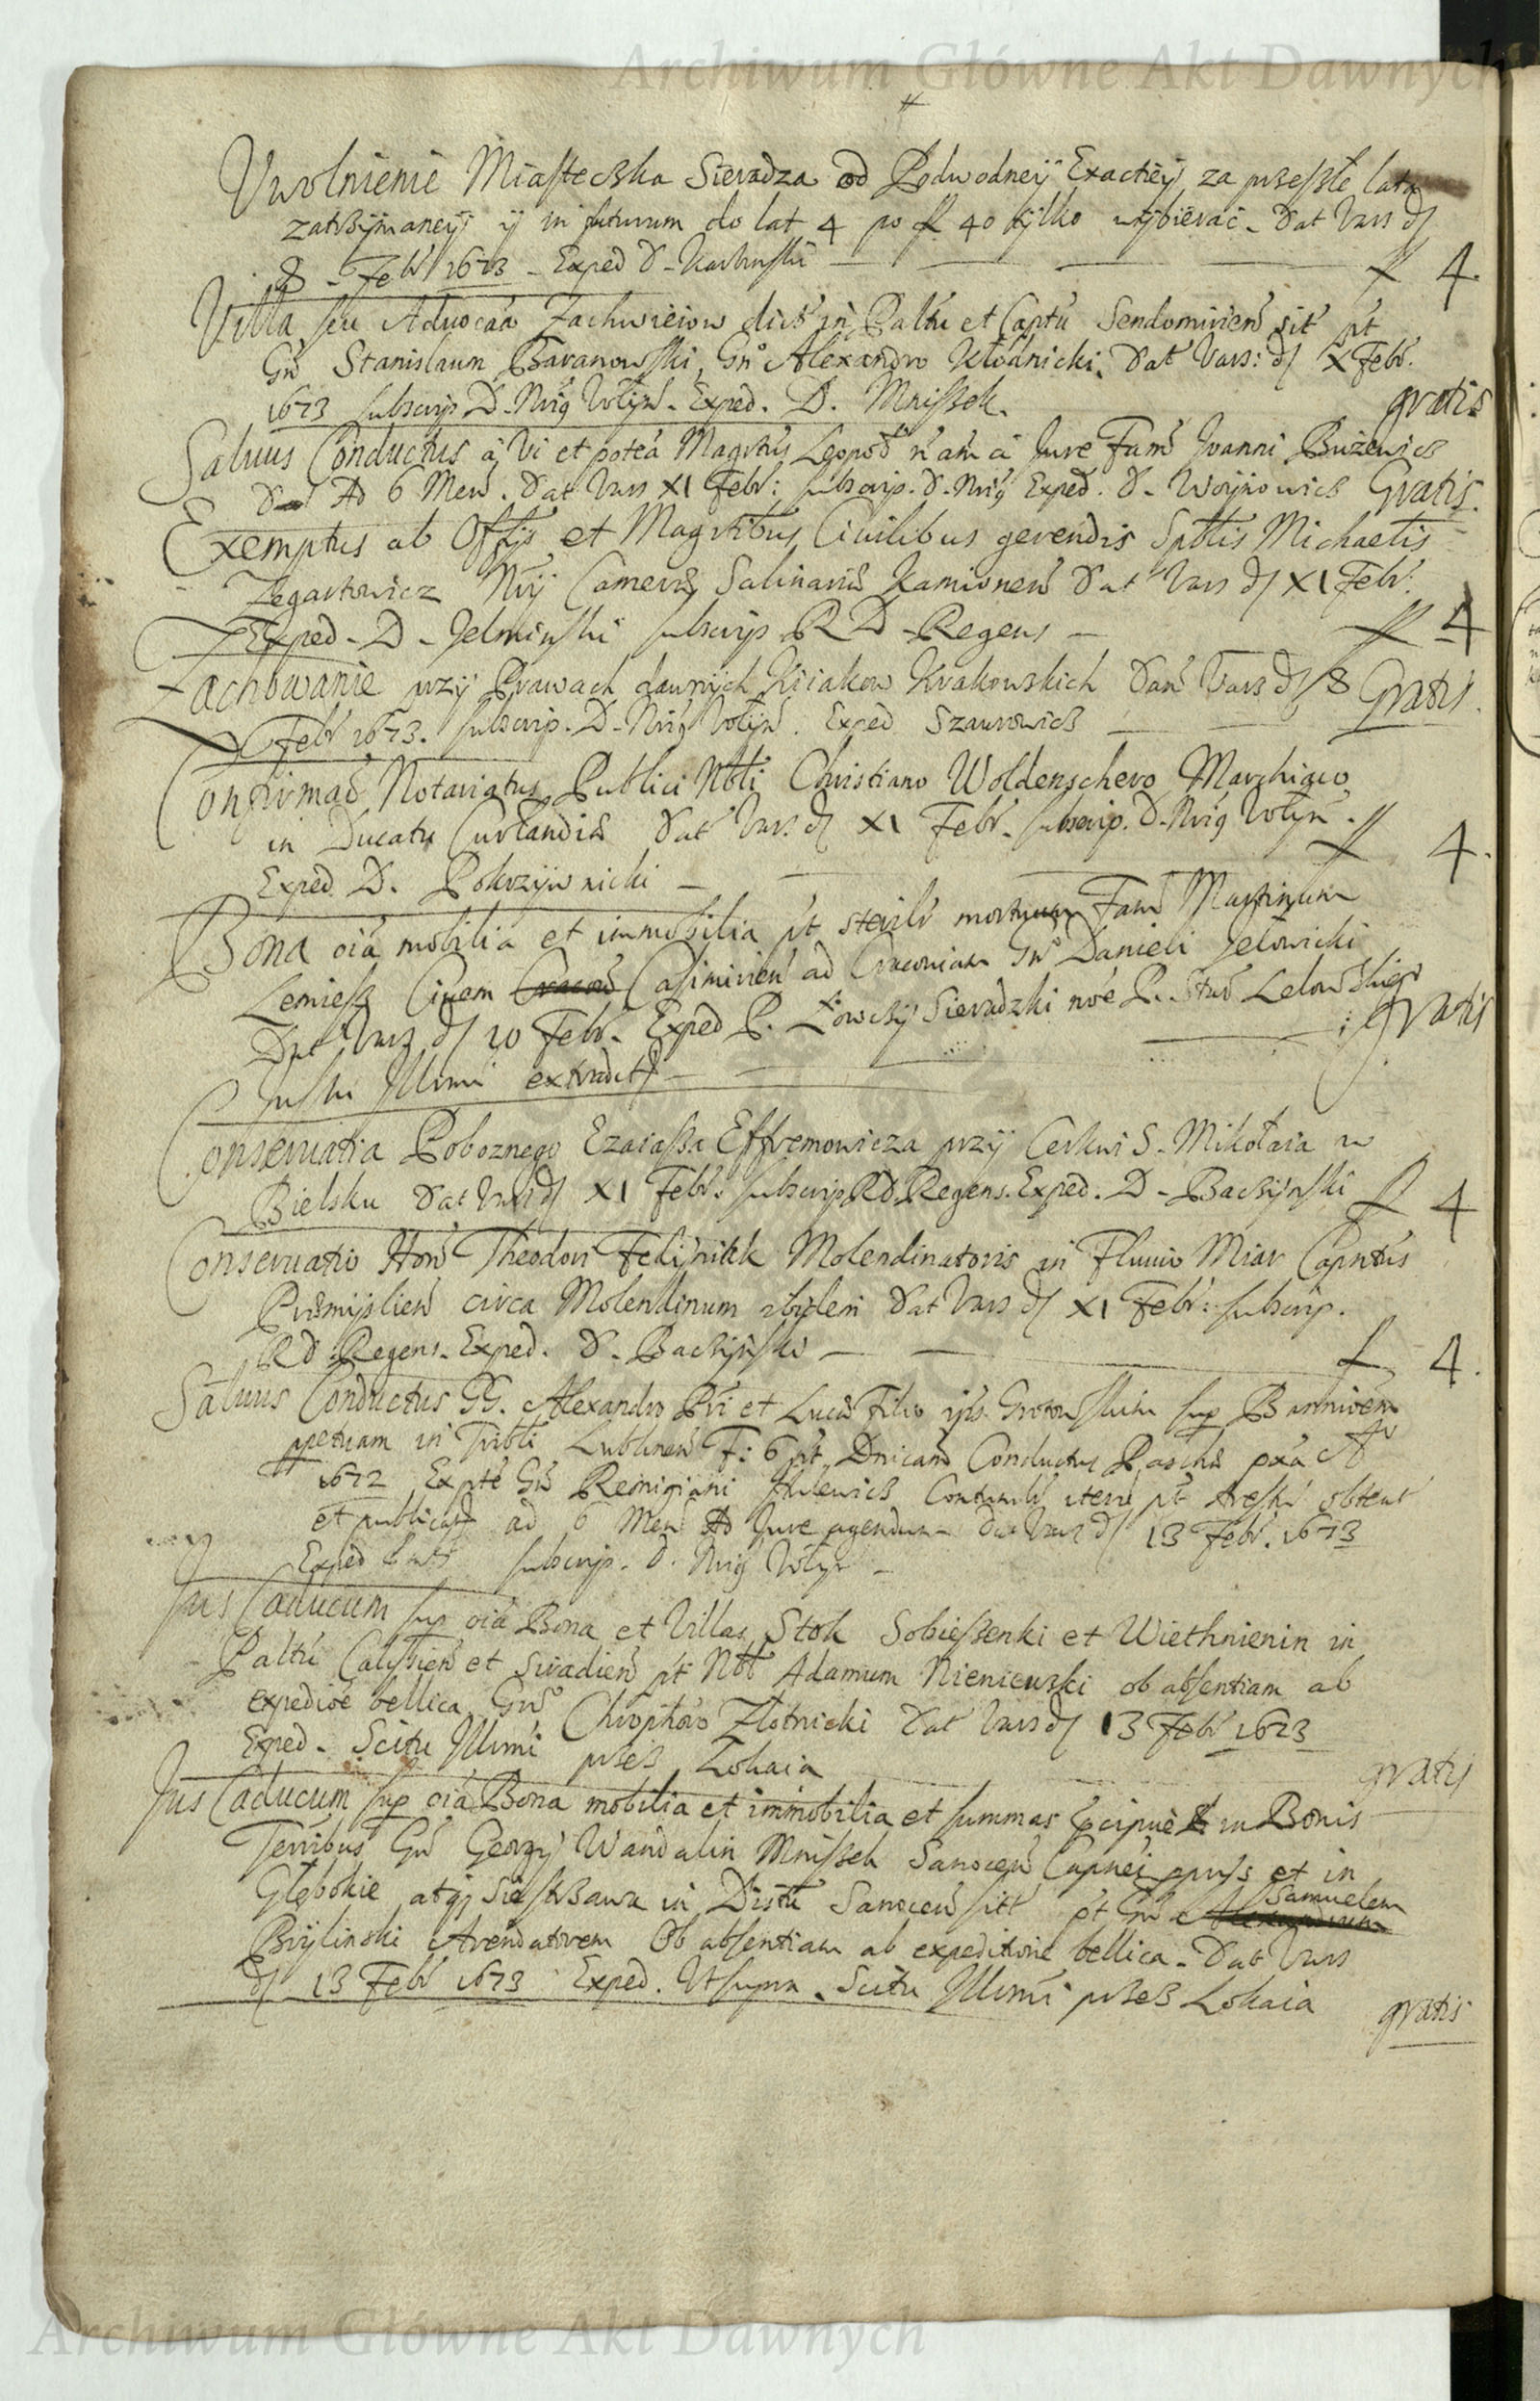 Archiwum Główne Akt Dawnych
Uwolnienie Miasteczka Sieradza od Podwodney Exactiey za przeszłe lata
zatrzymaney y in futurum do lat 4 po fl 40 tylko wybierać. Dat Vars d
8 Febr 1673 - Exped D.
fl 4.
Villa seu Advocaa Zachwieiow dict in Paltu et Captu Sendomirien sit pt
Gn Stanislaum Baranowski, Gno Alexandro Kłodnicki. Dat Vars: d X Febr.
1673 subscrip D. Nrig Volyn. Exped. D. Mniszek.
gratis
Salvus Conductus a Vi et potea Magrtus Leopol a Jure Fam Joanni Buzewicz
Ad 6 Men. Dat Vars XI Febr: subscrip. D. Nrig Exped. D. Woynowicz Gratis.
Exemptus ab Offijs et Magrtibus Civilibus gerendis Sptlis Michaelis
Zegartowicz Nrij Camerae Salinaris Kamionen Dat Vars d XI Febr:
Exped - D - Jelminski subscrip RD - Regens -
fl 4
Zachowanie przy Prawach dawnych Krakowskich Dan Vars d 8 Gratis.
Febr 1673. subscrip. D. Nrig Volyn. Exped Szaurowicz
Confirmao Notariatus Publici Nbli Christiano Woldenschero Marchiaco
in Ducatu Curlandiae Dat Vars d XI Febr. subscrip. D. Nrig Volyn.
Exped D. Pokrzywnicki -
fl 4.
Bona oia mobilia et immobilia pt steril mortuum Fam Martinum
Lemiesz Civem Cracov Casimirien ad Cracoviam Gno Danieli Jełowicki
Dat Vars d 10 Febr. Exped P. Łowczy Sieradzki noe P. Stae Lelowskiego
Jussu Illmi extradit -
Gratis
Conservatia Poboznego Ezaiasza Effremowicza przy Cerkwi S. Mikołaia w
Bielsku Dat Vars d XI Febr. subscrip RD. Regens. Exped. D - Baczynski
fl 4
Conservatio Hon Theodori Fedynitek Molendinatoris in Fluvio Wiar Capntus
Przemyslien circa Molendinum ibidem Dat Vars d XI Febr: subscrip.
RD. Regens. Exped. D. Baczynski -
fl 4.
Salvus Conductus GG. Alexandro Pri et Lucae Filio Grotowskim sup Bannioem
ppetuam in Tribli Lublinen F: 6 pt Dnicam Conductus Paschae pxa A
1672 Expte Gn Remigiani Contumli item pt obtent
et publicat ad 6 Men Ad Jure agendum Dat Vars d 13 Febr. 1673
Exped subscrip. D. Nrig Volyn -
Jus Caducum sup oia Bona et Villas Stok Sobieszenki et Wiethnienin in
Paltu Calissien et Siradien pt Nbl Adamum Nieniewski ob absentiam ab
expedioe bellica Gno Chrophoro Złotnicki Dat Vars d 13 Febr 1673
Exped - Scitu Illmi przez Lokaia
gratis
Jus Caducum sup oia Bona mobilia et immobilia et summas pcipue in Bonis
Terribus Gn Georgij Wandalin Mniszek Sanocen Capnei pprys et in
Głębokie atq Siestrzawa in Distu Sanocen sitt pt Gn Alexandrum Samuelem
Brylinski Arendatorem Ob absentiam ab expeditione bellica. Dat Vars
d 13 Febr 1673 Exped. Ut supra. Scitu Illmi przez Lokaia
gratis
Archiwum Główne Akt Dawnych